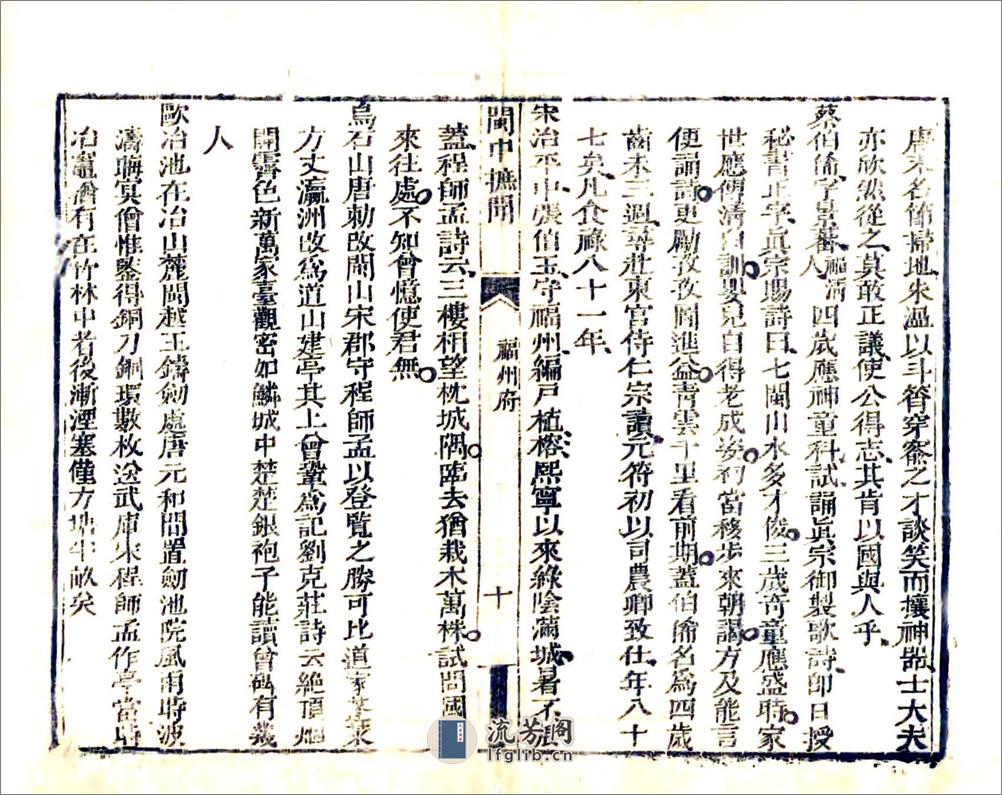 唐末名節掃地朱溫以斗筲穿窬之才談笑而攘神器士大夫
亦欣然從之莫敢正議使公得志其肯以國與人乎
蔡伯俙字景蕃福清人四歲應神童科試誦眞宗御製歌詩即日授
秘書正字眞宗賜詩曰七閩山水多才俊三歲奇童應盛時家
世應傳清白訓嬰兒自得老成姿初當移步來朝謁方及能言
便誦詩更勵孜孜圖進益青雲千里看前期蓋伯俙名爲四歲
齒未三週尋莊東宮侍仁宗讀元符初以司農卿致仕年八十
七矣凡食祿八十一年
宋治平中張伯玉守福州編戸植榕熙寧以來綠陰滿城暑不張
閩中摭聞
福州府
十
蓋程師孟詩云三樓相望枕城隅臨去猶栽木萬株試問國
來往處不知曾憶使君無
烏石山唐勅改閩山宋郡守程師孟以登覽之勝可比道家蓬萊
方丈瀛洲改爲道山建亭其上曾鞏爲記劉克莊詩云絶頂烟
開霽色新萬家臺觀密如鱗城中楚楚銀袍子能讀曾碑有幾
人
歐冶池在冶山麓閩越王鑄劍處唐元和間置劍池院風雨時波
濤晦冥僧惟鑒得銅刀銅環數枚送武庫宋程師孟作亭當時
冶竈猶有在竹林中者後漸湮塞僅方塘半畝矣
流芳阁
lfglib.cn